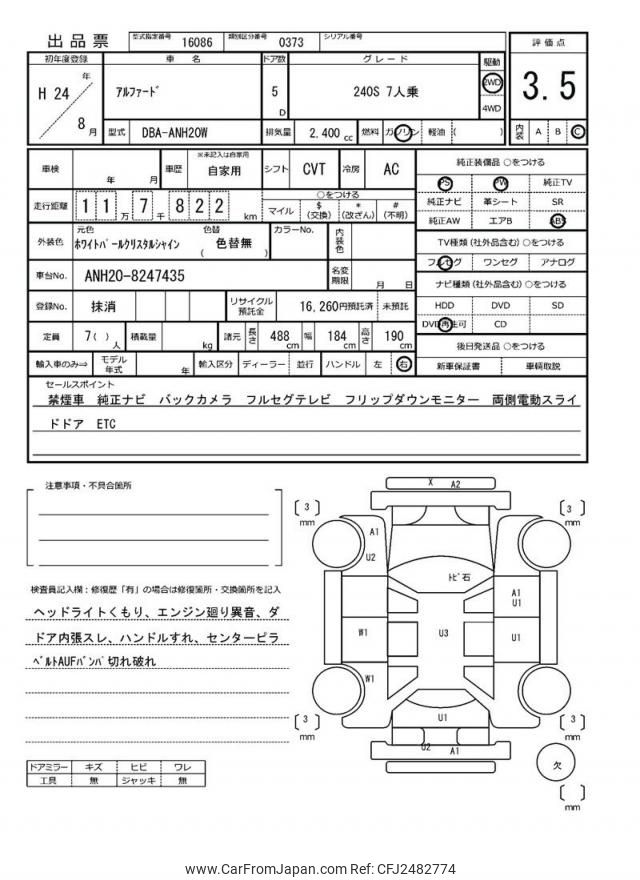 出品票 型式指定番号 16086 類別区分番号 0373 シリアル番号
初年度登録 車名 ドア数 グレード 駆動 評価点
H 24 年 8 月 アルファード 5 D 240S 7人乗 2WD 4WD 3.5
型式 DBA-ANH20W 排気量 2,400 cc 燃料 ガソリン 軽油 ( ) 内装 A B C
車検 年 月 車歴 ※未記入は自家用 自家用 シフト CVT 冷房 AC 純正装備品 ○をつける
PS PW 純正TV
走行距離 1 1 万 7 千 8 2 2 km ○をつける 純正ナビ 革シート SR
マイル $(交換) *(改ざん) #(不明) 純正AW エアB ABS
外装色 元色 ホワイトパールクリスタルシャイン 色替 ( 色替無 ) カラーNo. 内装色 TV種類(社外品含む)○をつける
フルセグ ワンセグ アナログ
車台No. ANH20-8247435 名変期限 月 日 ナビ種類(社外品含む)○をつける
登録No. 抹消 リサイクル預託金 16,260円預託済 未預託 HDD DVD SD
DVD再生可 CD
定員 7( )人 積載量 kg 諸元 長さ 488 cm 幅 184 cm 高さ 190 cm 後日発送品 ○をつける
輸入車のみ⇒ モデル年式 年 輸入区分 ディーラー 並行 ハンドル 左 右 新車保証書 車輌取説
セールスポイント
禁煙車 純正ナビ バックカメラ フルセグテレビ フリップダウンモニター 両側電動スライ
ドドア ETC
注意事項・不具合箇所
検査員記入欄:修復歴「有」の場合は修復箇所・交換箇所を記入
ヘッドライトくもり、エンジン廻り異音、ダ
ドア内張スレ、ハンドルすれ、センターピラ
ベルトAUFバンパ切れ破れ
ドアミラー キズ ヒビ ワレ
工具 無 ジャッキ 無
X A2
3 mm
3 mm
A1
U2
トビ石
A1
U1
W1
U3
U1
W1
U1
3 mm
3 mm
U2
A1
欠
mm
www.CarFromJapan.com Ref: CFJ2482774